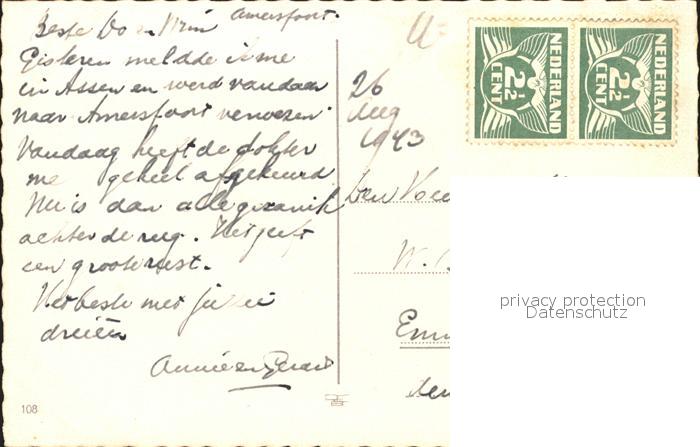 Amersfoort.
Beste Do en Wim
Gisteren meldde ik me
in Assen en werd vandaar
naar Amersfoort verwezen
Vandaag heeft de dokter
me geheel afgekeurd
Nu is dan alle gezanik
achter de rug. Het geeft
een groote rust.
Het beste met jullie
drieën
Annie en Gerard
108
26
Aug
1943
NEDERLAND
2½
CENT
NEDERLAND
2½
CENT
Den
W.
privacy protection
Datenschutz